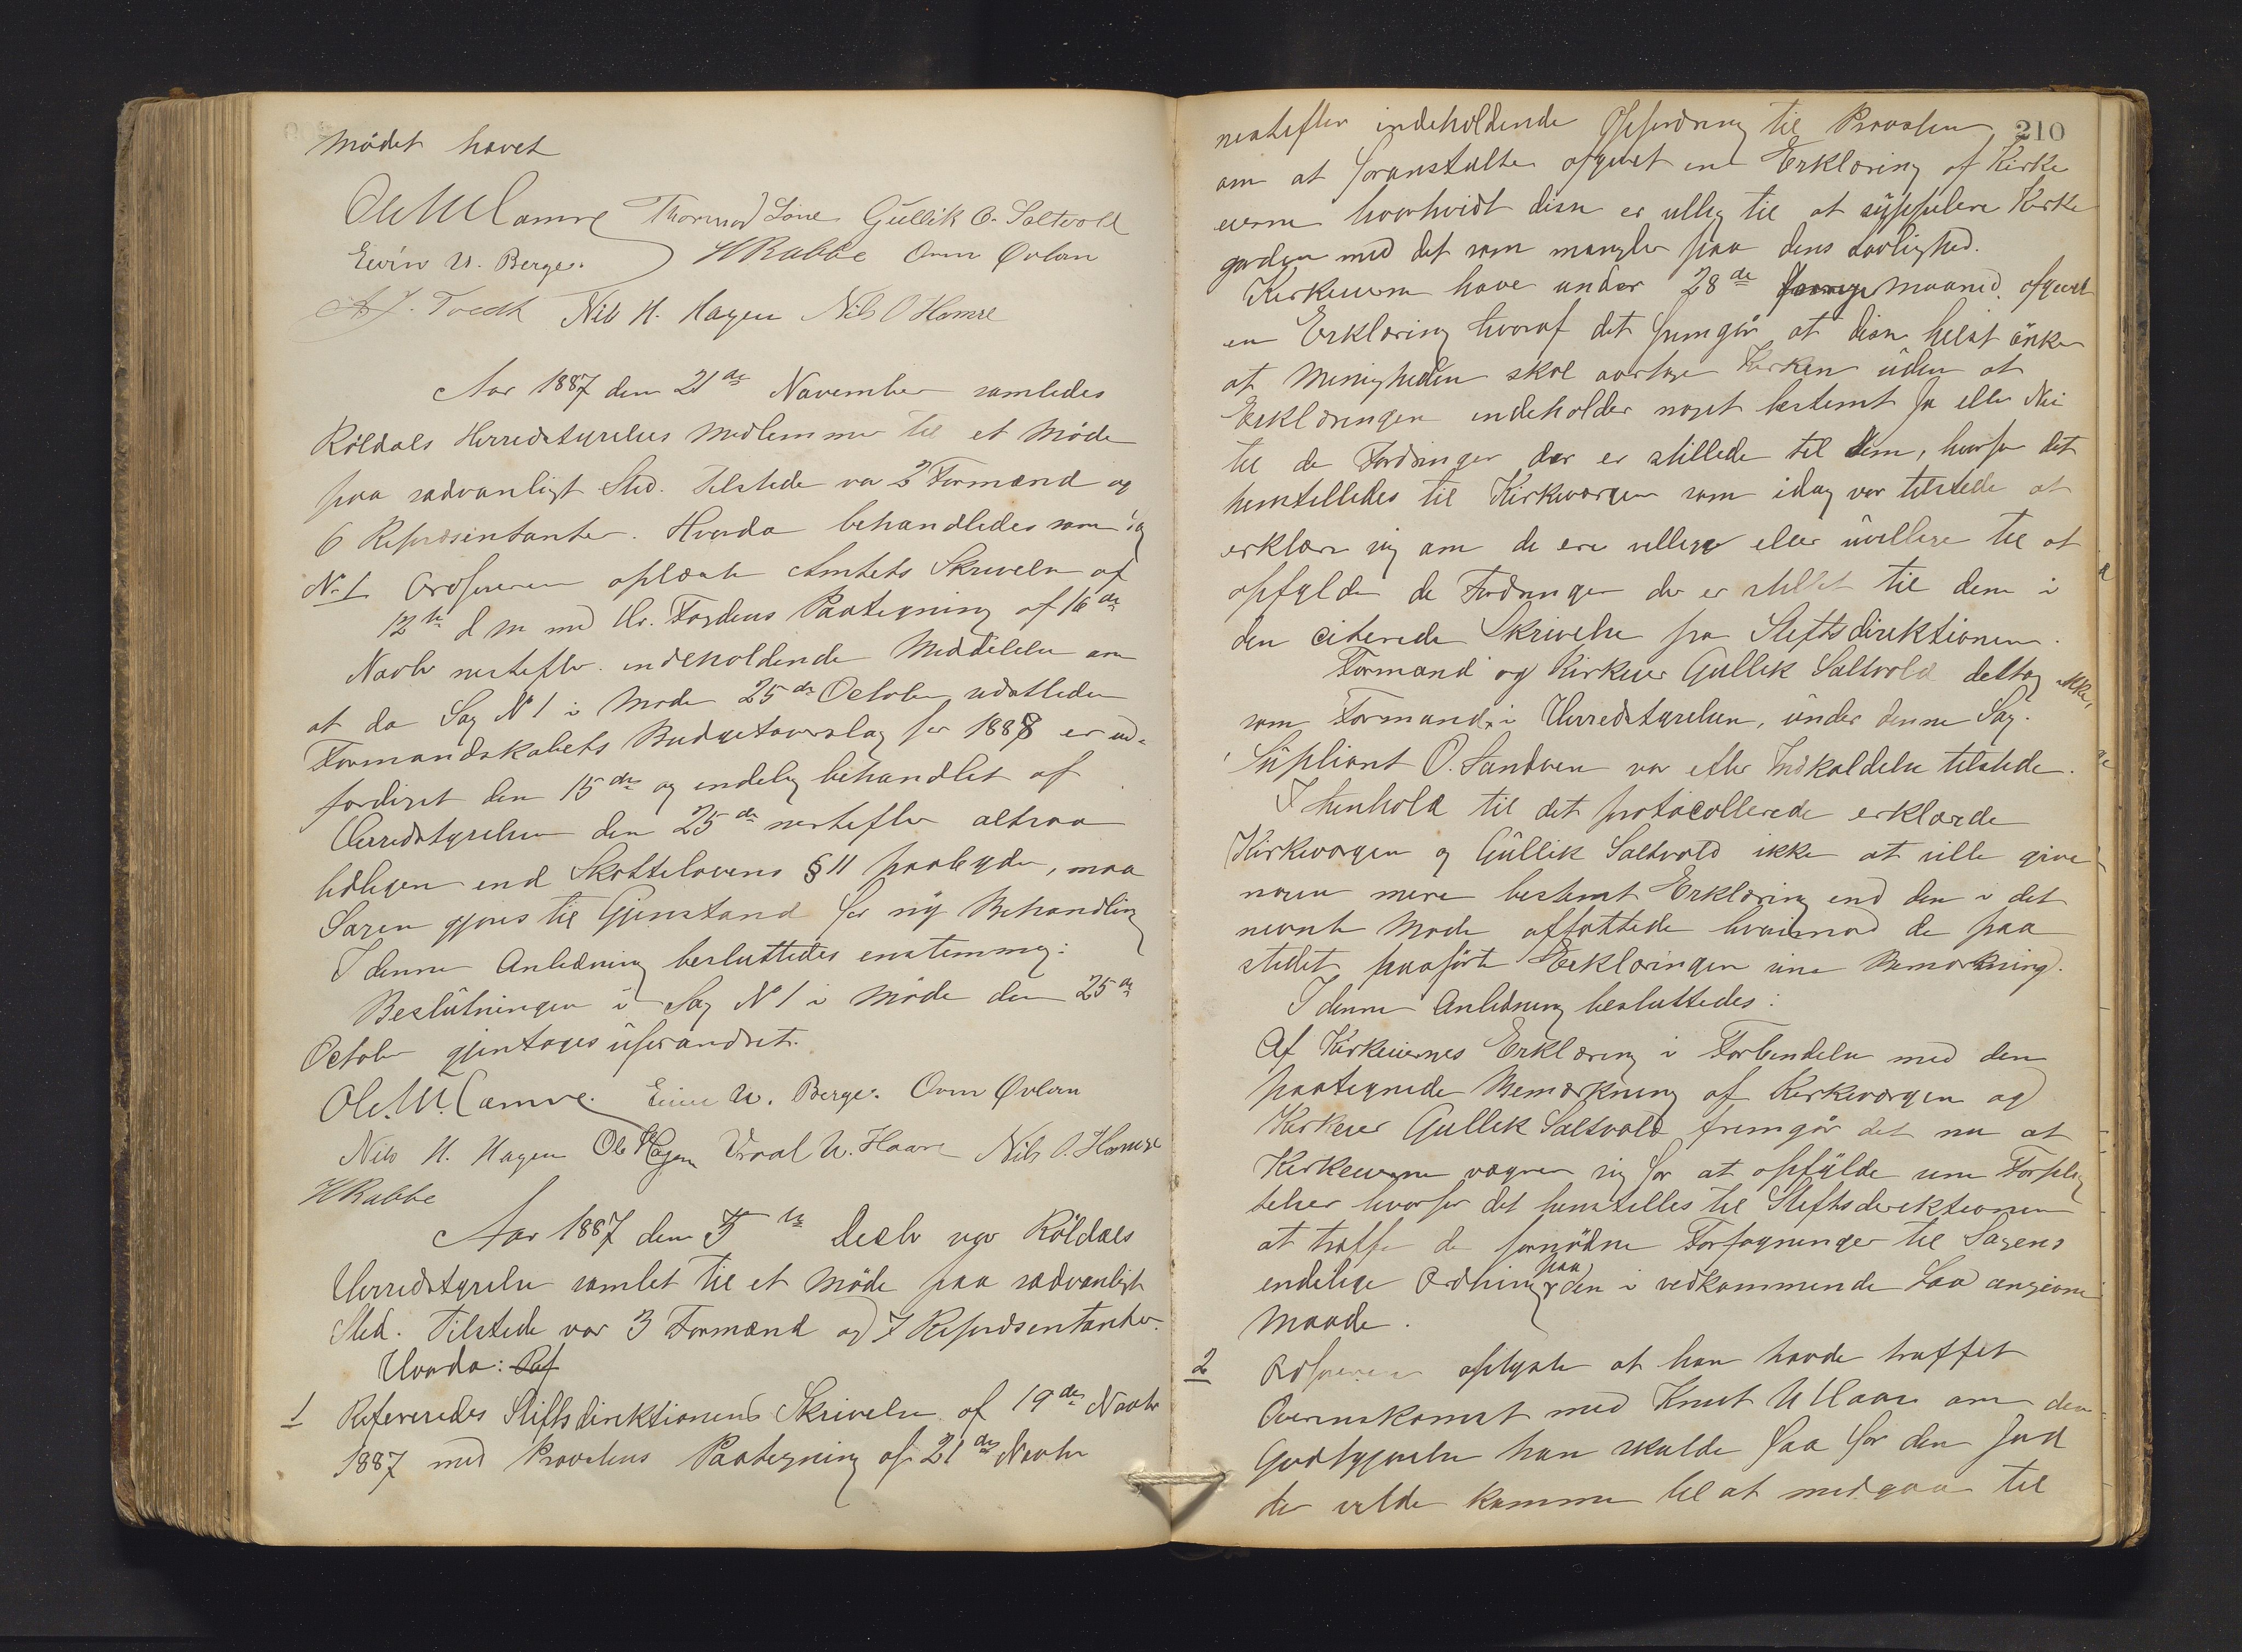 Mödet hævet
Ole M Hamre Thormod Løne Gullik O. Saltvold
Eivin U. Berge. H Rabbe Orm Øvlern
Nils H. Hagen Nils O Hamre
Aar 1887 den 21de November samledes
Röldals Herredstyrelses Medlemmer til et Möde
paa sædvanligt Sted. Tilstede var 2 Formænd og
6 Repræsentanter. Hvorda behandledes som Sag
No 1 Ordføreren oplæste Amtets Skrivelse af
12te d M med Hr. Fogdens Paategning af 16de
Novbr næstefter indeholdende Meddelelse om
at da Sag No 1 i Møde 25de October udstedte
Formandskabets Budgetoverslag for 1888 er ud-
færdiget den 15de og endelig behandlet af
Herredstyrelsen den 25de næstefter altsaa
tidligere end Skattelovens § 11 paabyder, maa
Sagen gjøres til Gjenstand for ny Behandling
I denne Anledning besluttedes enstemmig:
Beslutningen i Sag No 1 i Møde den 25de
October gjentages uforandret.
Ole M. Hamre. Eivin U. Berge. Orm Øvlern
Nils H. Hagen Ole Hagen Vraal U. Haare Nils O. Hamre
H Rabbe
Aar 1887 den 5te Decbr var Röldals
Herredstyrelse samlet til et Möde paa sædvanligt
Sted. Tilstede var 3 Formænd og 7 Repræsentanter.
Hvorda: Ref
1 Refereredes Stiftsdirektionens Skrivelse af 19de Novbr
1887 med Provstens Paategning af 21de Novbr
210
næstefter indeholdende Opfordring til Provsten
om at foranstalte afgivet en Erklæring af Kirke
eierne hvorhvidt disse er villig til at suppelere Kirke
gården med det som mangler paa dens Lovlighed.
Kirkeeierne have under 28de forrige Maaned. afgivet
en Erklæring hvoraf det fremgår at disse helst önsker
at Menigheden skal overtage Kirken uden at
Erklæringen indeholder noget bestemt Ja eller Nei
til de Fordringer der er stillede til dem, hvorfor det
henstilledes til Kirkeværgen som idag var tilstede at
erklære sig om de ere villige eller uvillige til at
opfylde de Fordringer der er stillet til dem i
den citerede Skrivelse fra Stiftsdirektionen.
Formand og Kirkeier Gullik Saltvold deltog ikke,
som Formand i Herredstyrelsen, under denne Sag.
Supliant O. Sandven var efter Indkaldelse tilstede.
I henhold til det protocollerede erklærede
Kirkeværgen og Gullik Saltvold ikke at ville give
nogen mere bestemt Erklæring end den i det
nævnte Møde affattede hvorimod de paa
stedet paaförte Erklæringen sine Bemærkning.
I denne Anledning besluttedes:
Af Kirkeeiernes Erklæring i Forbindelse med den
paategnede Bemærkning af Kirkeværgen og
Kirkeier Gullik Saltvold fremgår det nu at
Kirkeeierne vægrer sig for at opfylde sine Forplig
telser hvorfor det henstilles til Stiftsdirektionen
at træffe de fornödne Forføyninger til Sagens
endelige Ordning paa den i vedkommende Lov angivne
Maade.
2 Ordføreren oplyste at han havde truffet
Overenskomst med Knut U Haare om den
Godtgjørelse han skulde faa for den Jord
der vilde komme til at medgaa til